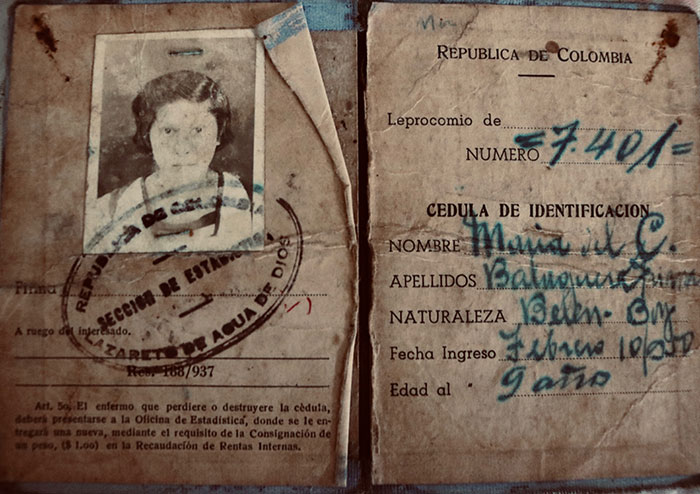 REPUBLICA DE COLOMBIA
SECCION DE ESTADISTICA
LAZARETO DE AGUA DE DIOS
Firma
A ruego del interesado.
Res. 188/937
Art. 5o. El enfermo que perdiere o destruyere la cédula,
deberá presentarse a la Oficina de Estadística, donde se le en-
tregará una nueva, mediante el requisito de la Consignación de
un peso, ($ 1.oo) en la Recaudación de Rentas Internas.
REPUBLICA DE COLOMBIA
Leprocomio de
NUMERO =7.401=
CEDULA DE IDENTIFICACION
NOMBRE Maria del C.
APELLIDOS
NATURALEZA Belen-Boy
Fecha Ingreso Febrero 10/950
Edad al 9 año